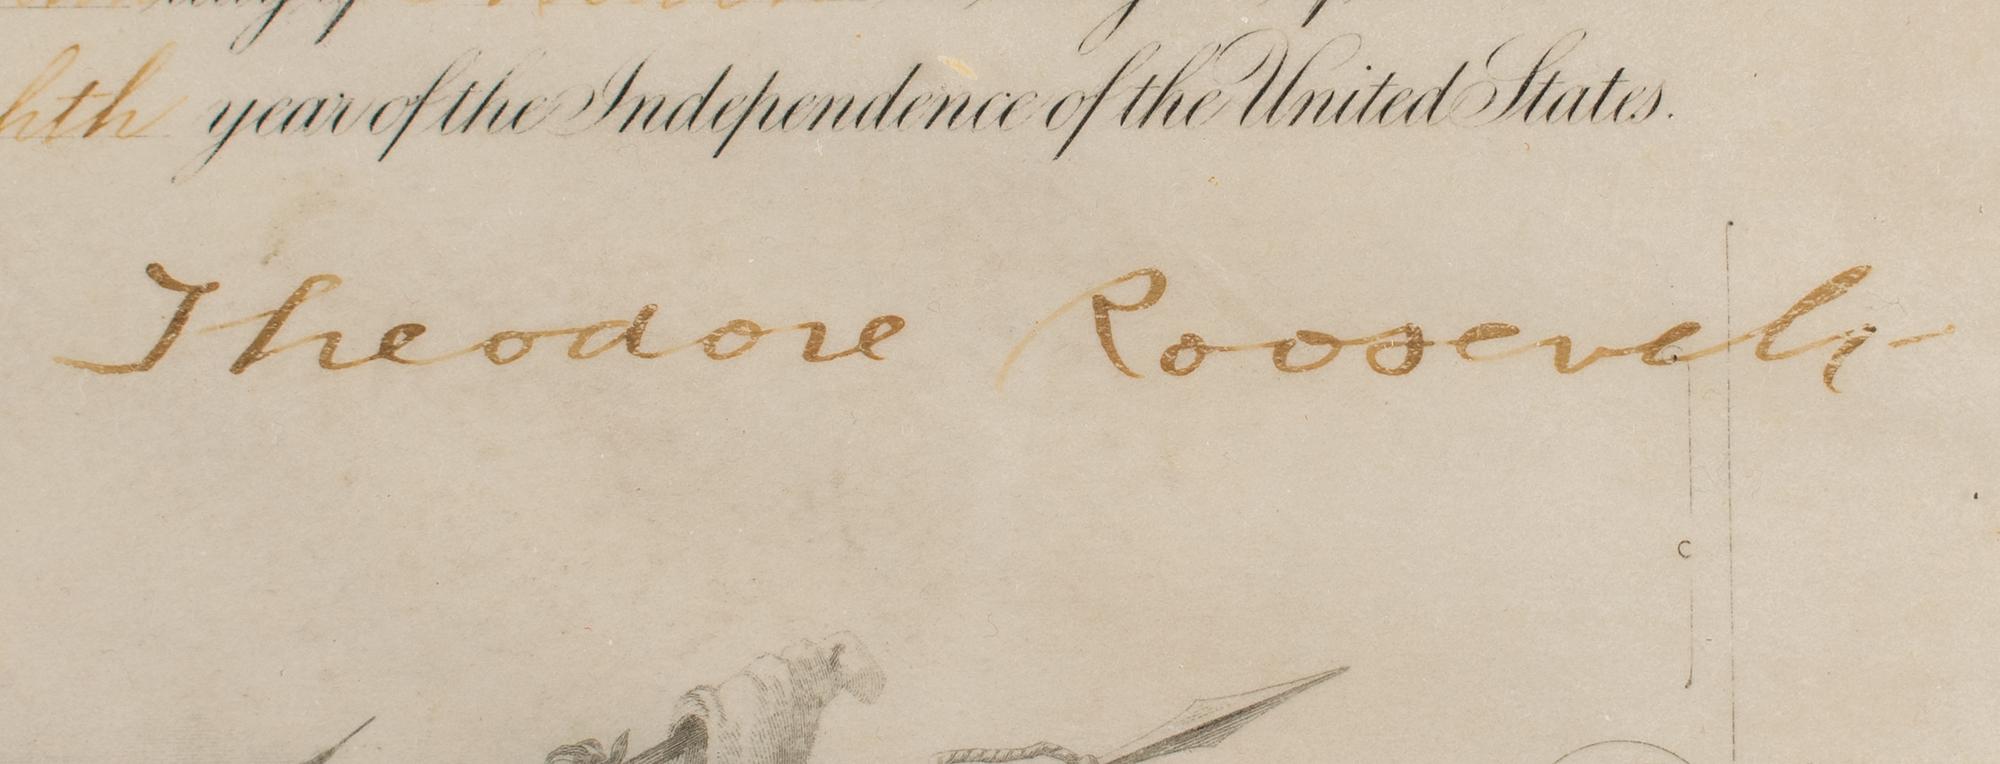 hth year of the Independence of the United States.
Theodore Roosevelt
C